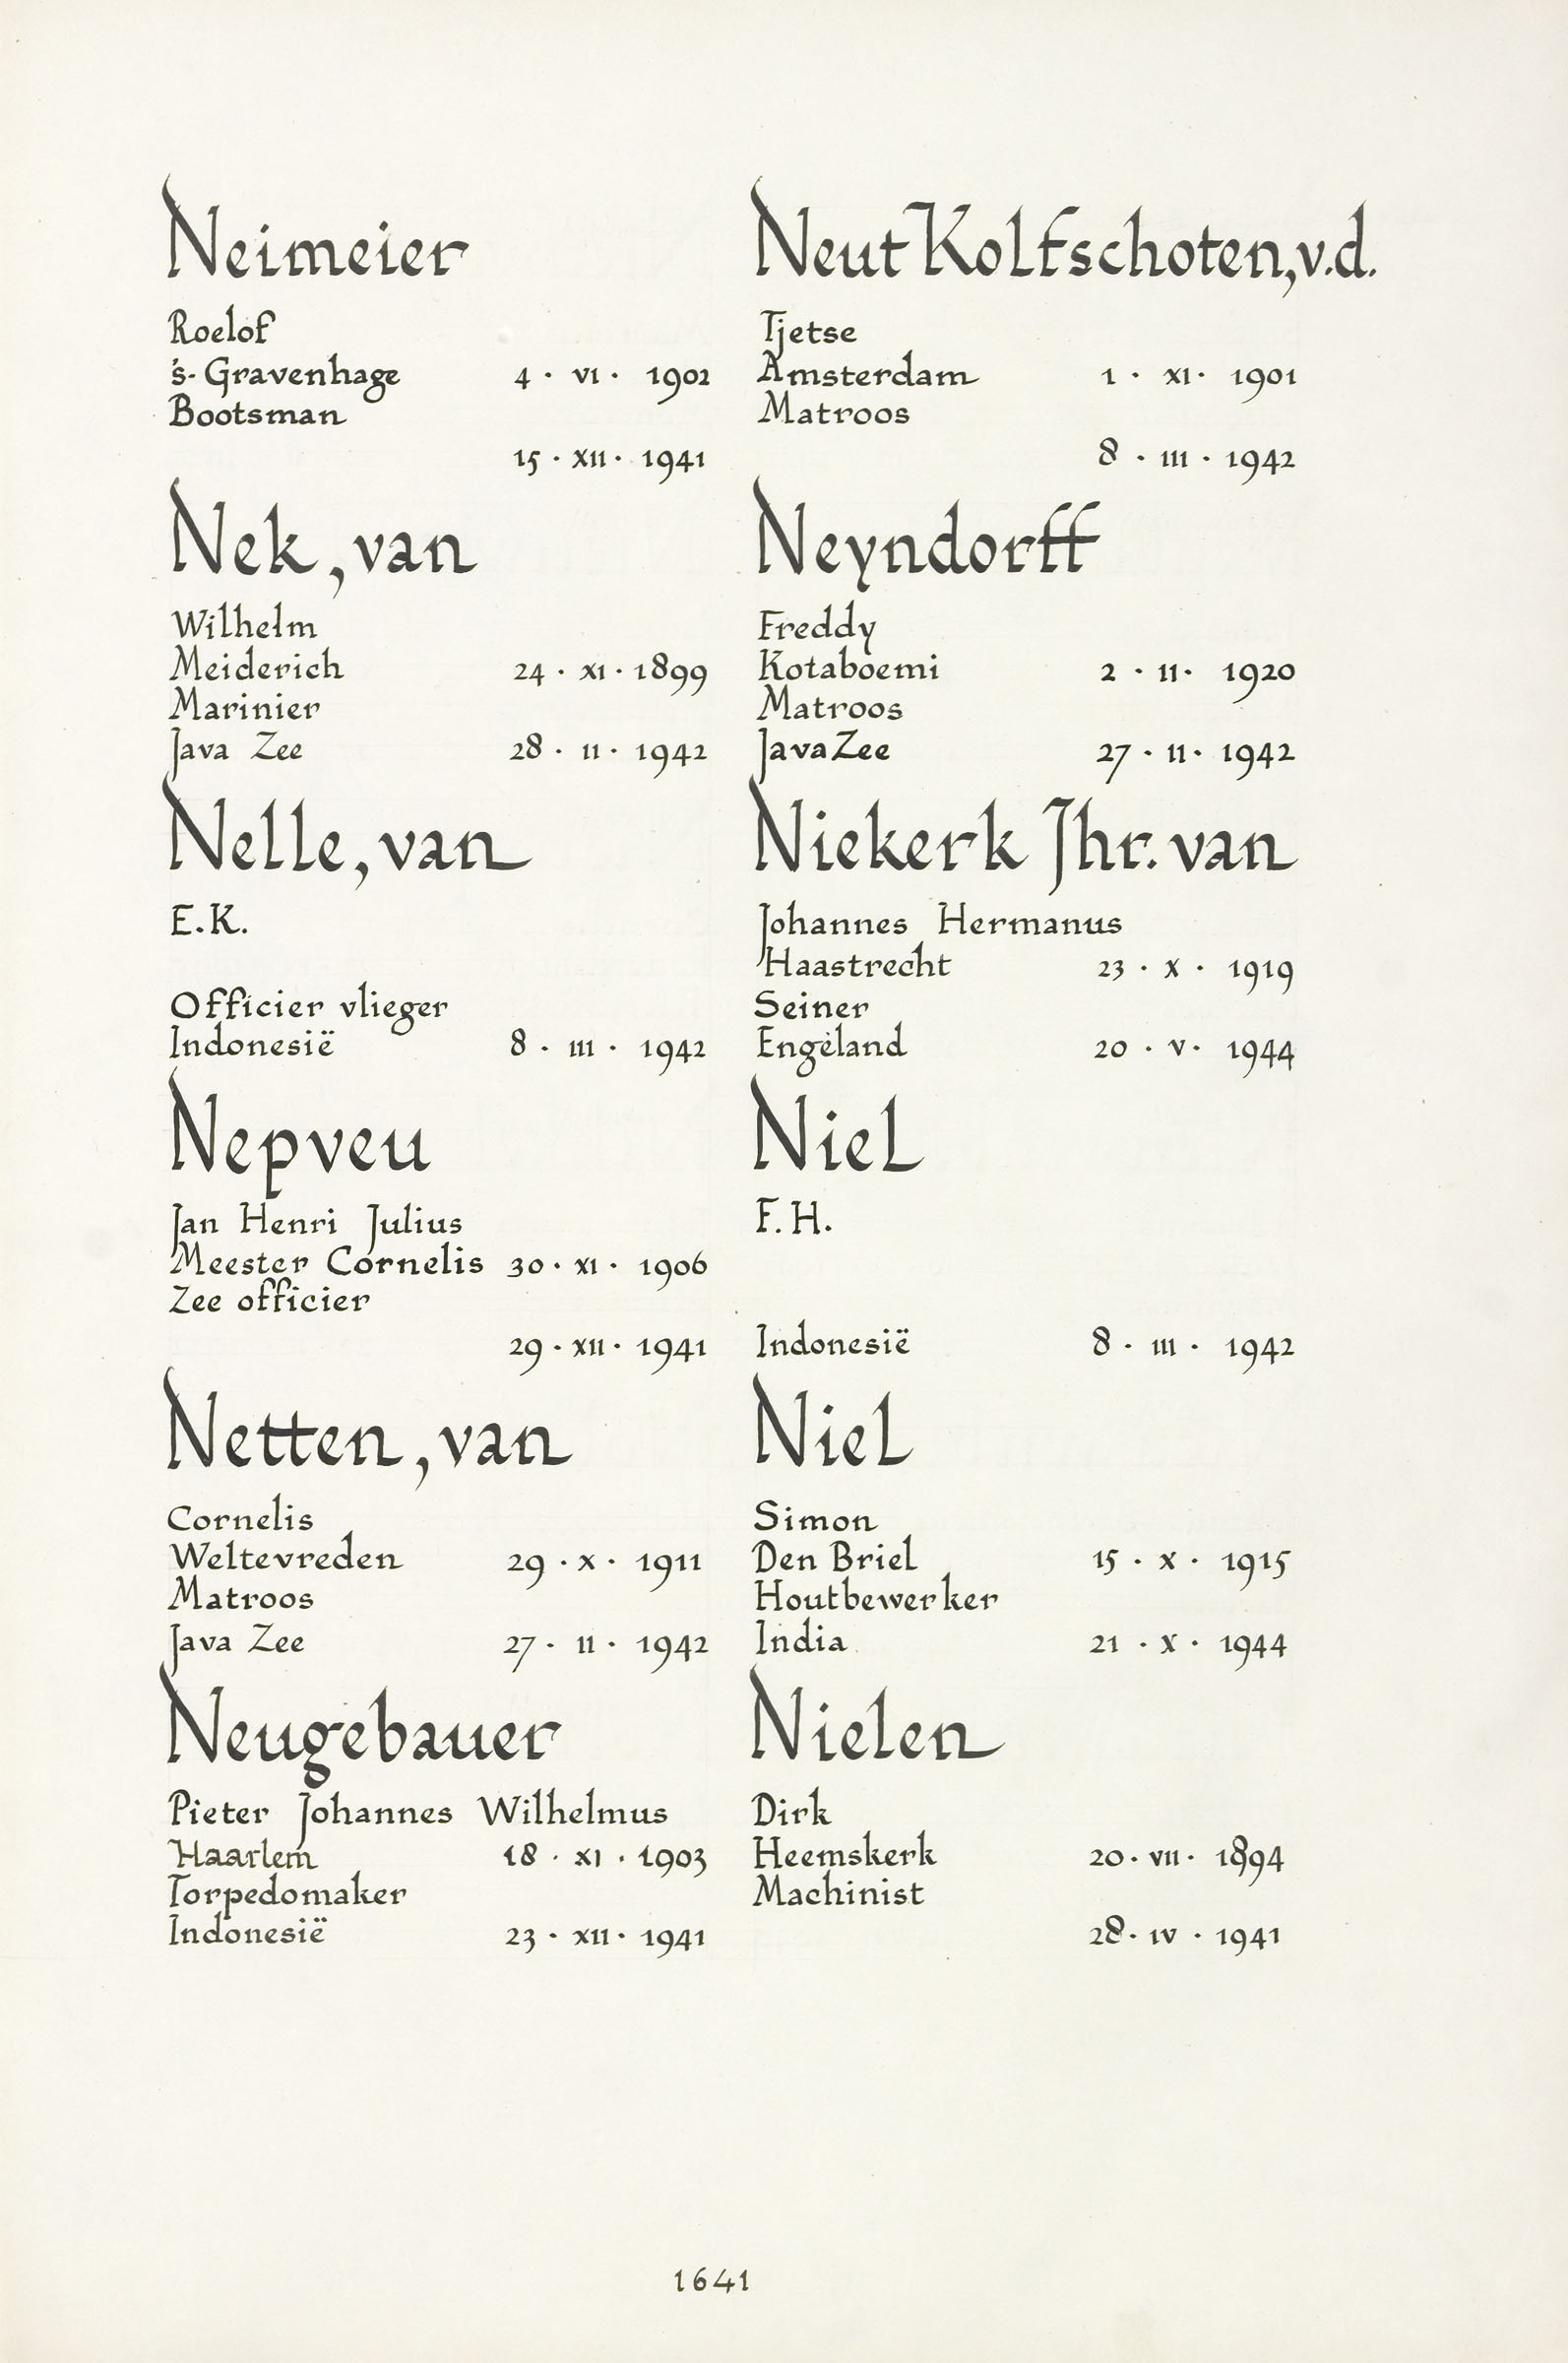 Neimeier
Roelof
's-Gravenhage 4 · VI · 1902
Bootsman
15 · XII · 1941
Nek, van
Wilhelm
Meiderich 24 · XI · 1899
Marinier
Java Zee 28 · II · 1942
Nelle, van
E.K.
Officier vlieger
Indonesië 8 · III · 1942
Nepveu
Jan Henri Julius
Meester Cornelis 30 · XI · 1906
Zee officier
29 · XII · 1941
Netten, van
Cornelis
Weltevreden 29 · X · 1911
Matroos
Java Zee 27 · II · 1942
Neugebauer
Pieter Johannes Wilhelmus
Haarlem 18 · XI · 1903
Torpedomaker
Indonesië 23 · XII · 1941
Neut Kolfschoten, v.d.
Tjetse
Amsterdam 1 · XI · 1901
Matroos
8 · III · 1942
Neyndorff
Freddy
Kotaboemi 2 · II · 1920
Matroos
Java Zee 27 · II · 1942
Niekerk Jhr. van
Johannes Hermanus
Haastrecht 23 · X · 1919
Seiner
Engeland 20 · V · 1944
Niel
F.H.
Indonesië 8 · III · 1942
Niel
Simon
Den Briel 15 · X · 1915
Houtbewerker
India 21 · X · 1944
Nielen
Dirk
Heemskerk 20 · VII · 1894
Machinist
28 · IV · 1941
1641